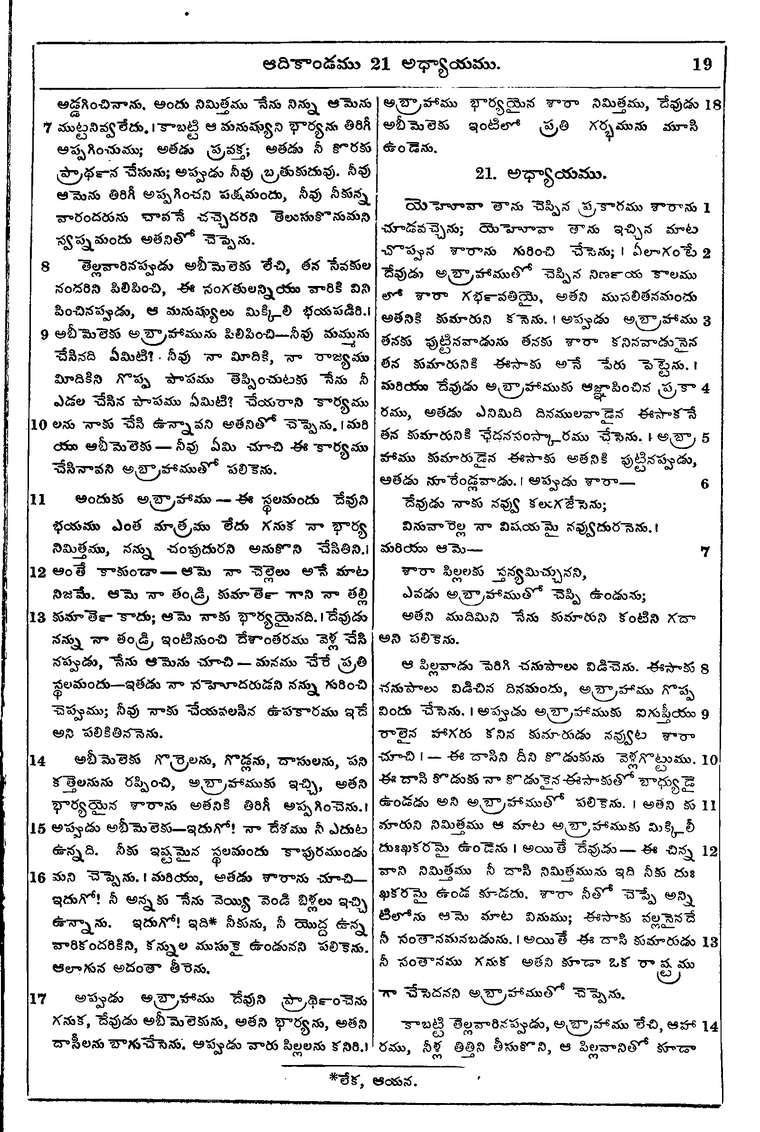 ఆదికాండము 21 అధ్యాయము. 19
అడ్డగించినాను. అందు నిమిత్తము నేను నిన్ను ఆమెను
7 ముట్టనివ్వలేదు. । కాబట్టి ఆ మనుష్యుని భార్యను తిరిగీ
అప్పగించుము; అతడు ప్రవక్త; అతడు నీ కొరకు
ప్రార్థన చేసును; అప్పుడు నీవు బ్రతుకుదువు. నీవు
ఆమెను తిరిగీ అప్పగించని పక్షమందు, నీవు నీకున్న
వారందరును చావనే చచ్చెదరని తెలుసుకొనుమని
స్వప్నమందు అతనితో చెప్పెను.
8 తెల్లవారినప్పుడు అబీమెలెకు లేచి, తన సేవకుల
నందరిని పిలిపించి, ఈ సంగతులన్నియు వారికి విని
పించినప్పుడు, ఆ మనుష్యులు మిక్కిలి భయపడిరి. ।
9 అబీమెలెకు అబ్రాహామును పిలిపించి—నీవు మమ్మును
చేసినది ఏమిటి? నీవు నా మీదికి, నా రాజ్యము
మీదికిని గొప్ప పాపము తెప్పించుటకు నేను నీ
ఎడల చేసిన పాపము ఏమిటి? చేయరాని కార్యము
10 లను నాకు చేసి ఉన్నావని అతనితో చెప్పెను. । మరి
యు అబీమెలెకు — నీవు ఏమి చూచి ఈ కార్యము
చేసినావని అబ్రాహాముతో పలికెను.
11 అందుకు అబ్రాహాము — ఈ స్థలమందు దేవుని
భయము ఎంత మాత్రము లేదు గనుక నా భార్య
నిమిత్తము, నన్ను చంపుదురని అనుకొని చేసితిని. ।
12 అంతే కాకుండా — ఆమె నా చెల్లెలు అనే మాట
నిజమే. ఆమె నా తండ్రి కుమార్తె గాని నా తల్లి
13 కుమార్తె కాదు; ఆమె నాకు భార్యయైనది. । దేవుడు
నన్ను నా తండ్రి ఇంటినుంచి దేశాంతరము వెళ్ల చేసి
నప్పుడు, నేను ఆమెను చూచి — మనము చేరే ప్రతి
స్థలమందు—ఇతడు నా సహోదరుడని నన్ను గురించి
చెప్పుము; నీవు నాకు చేయవలసిన ఉపకారము ఇదే
అని పలికితిననెను.
14 అబీమెలెకు గొర్రెలను, గొడ్లను, దాసులను, పని
కత్తెలనును రప్పించి, అబ్రాహాముకు ఇచ్చి, అతని
భార్యయైన శారాను అతనికి తిరిగీ అప్పగించెను. ।
15 అప్పుడు అబీమెలెకు—ఇదుగో! నా దేశము నీ ఎదుట
ఉన్నది. నీకు ఇష్టమైన స్థలమందు కాపురముండు
16 మని చెప్పెను. । మరియు, అతడు శారాను చూచి—
ఇదుగో! నీ అన్నకు నేను వెయ్యి వెండి బిళ్లలు ఇచ్చి
ఉన్నాను. ఇదుగో! ఇది* నీకును, నీ యొద్ద ఉన్న
వారికందరికిని, కన్నుల ముసుకై ఉండునని పలికెను.
ఆలాగున అదంతా తీరెను.
17 అప్పుడు అబ్రాహాము దేవుని ప్రార్థించెను
గనుక, దేవుడు అబీమెలెకును, అతని భార్యను, అతని
దాసీలను బాగుచేసెను. అప్పుడు వారు పిల్లలను కనిరి. ।
అబ్రాహాము భార్యయైన శారా నిమిత్తము, దేవుడు 18
అబీమెలెకు ఇంటిలో ప్రతి గర్భమును మూసి
ఉండెను.
21. అధ్యాయము.
యెహోవా తాను చెప్పిన ప్రకారము శారాను 1
చూడవచ్చెను; యెహోవా తాను ఇచ్చిన మాట
చొప్పున శారాను గురించి చేసెను; । ఏలాగంటే 2
దేవుడు అబ్రాహాముతో చెప్పిన నిర్ణయ కాలము
లో శారా గర్భవతియై, అతని ముసలితనమందు
అతనికి కుమారుని కనెను. । అప్పుడు అబ్రాహాము 3
తనకు పుట్టినవాడును తనకు శారా కనినవాడునైన
తన కుమారునికి ఈసాకు అనే పేరు పెట్టెను. ।
మరియు దేవుడు అబ్రాహాముకు ఆజ్ఞాపించిన ప్రకా 4
రము, అతడు ఎనిమిది దినములవాడైన ఈసాకనే
తన కుమారునికి ఛేదనసంస్కారము చేసెను. । అబ్రా 5
హాము కుమారుడైన ఈసాకు అతనికి పుట్టినప్పుడు,
అతడు నూరేండ్లవాడు. । అప్పుడు శారా— 6
దేవుడు నాకు నవ్వు కలుగజేసెను;
వినువారెల్ల నా విషయమై నవ్వుదురనెను. ।
మరియు ఆమె— 7
శారా పిల్లలకు స్తన్యమిచ్చునని,
ఎవడు అబ్రాహాముతో చెప్పి ఉండును;
అతని ముదిమిని నేను కుమారుని కంటిని గదా
అని పలికెను.
ఆ పిల్లవాడు పెరిగి చనుపాలు విడిచెను. ఈసాకు 8
చనుపాలు విడిచిన దినమందు, అబ్రాహాము గొప్ప
విందు చేసెను. । అప్పుడు అబ్రాహాముకు ఐగుప్తీయు 9
రాలైన హాగరు కనిన కుమారుడు నవ్వుట శారా
చూచి । — ఈ దాసిని దీని కొడుకును వెళ్లగొట్టుము. 10
ఈ దాసి కొడుకు నా కొడుకైన ఈసాకుతో బాధ్యుడై
ఉండడు అని అబ్రాహాముతో పలికెను. । అతని కు 11
మారుని నిమిత్తము ఆ మాట అబ్రాహాముకు మిక్కిలి
దుఃఖకరమై ఉండెను । అయితే దేవుడు — ఈ చిన్న 12
వాని నిమిత్తము నీ దాసి నిమిత్తమును ఇది నీకు దుః
ఖకరమై ఉండ కూడదు. శారా నీతో చెప్పే అన్ని
టిలోను ఆమె మాట వినుము; ఈసాకు వల్లనైనదే
నీ సంతానమనబడును. । అయితే ఈ దాసి కుమారుడు 13
నీ సంతానము గనుక అతని కూడా ఒక రాష్ట్రము
గా చేసెదనని అబ్రాహాముతో చెప్పెను.
కాబట్టి తెల్లవారినప్పుడు, అబ్రాహాము లేచి, ఆహా 14
రము, నీళ్ల తిత్తిని తీసుకొని, ఆ పిల్లవానితో కూడా
*లేక, ఆయన.